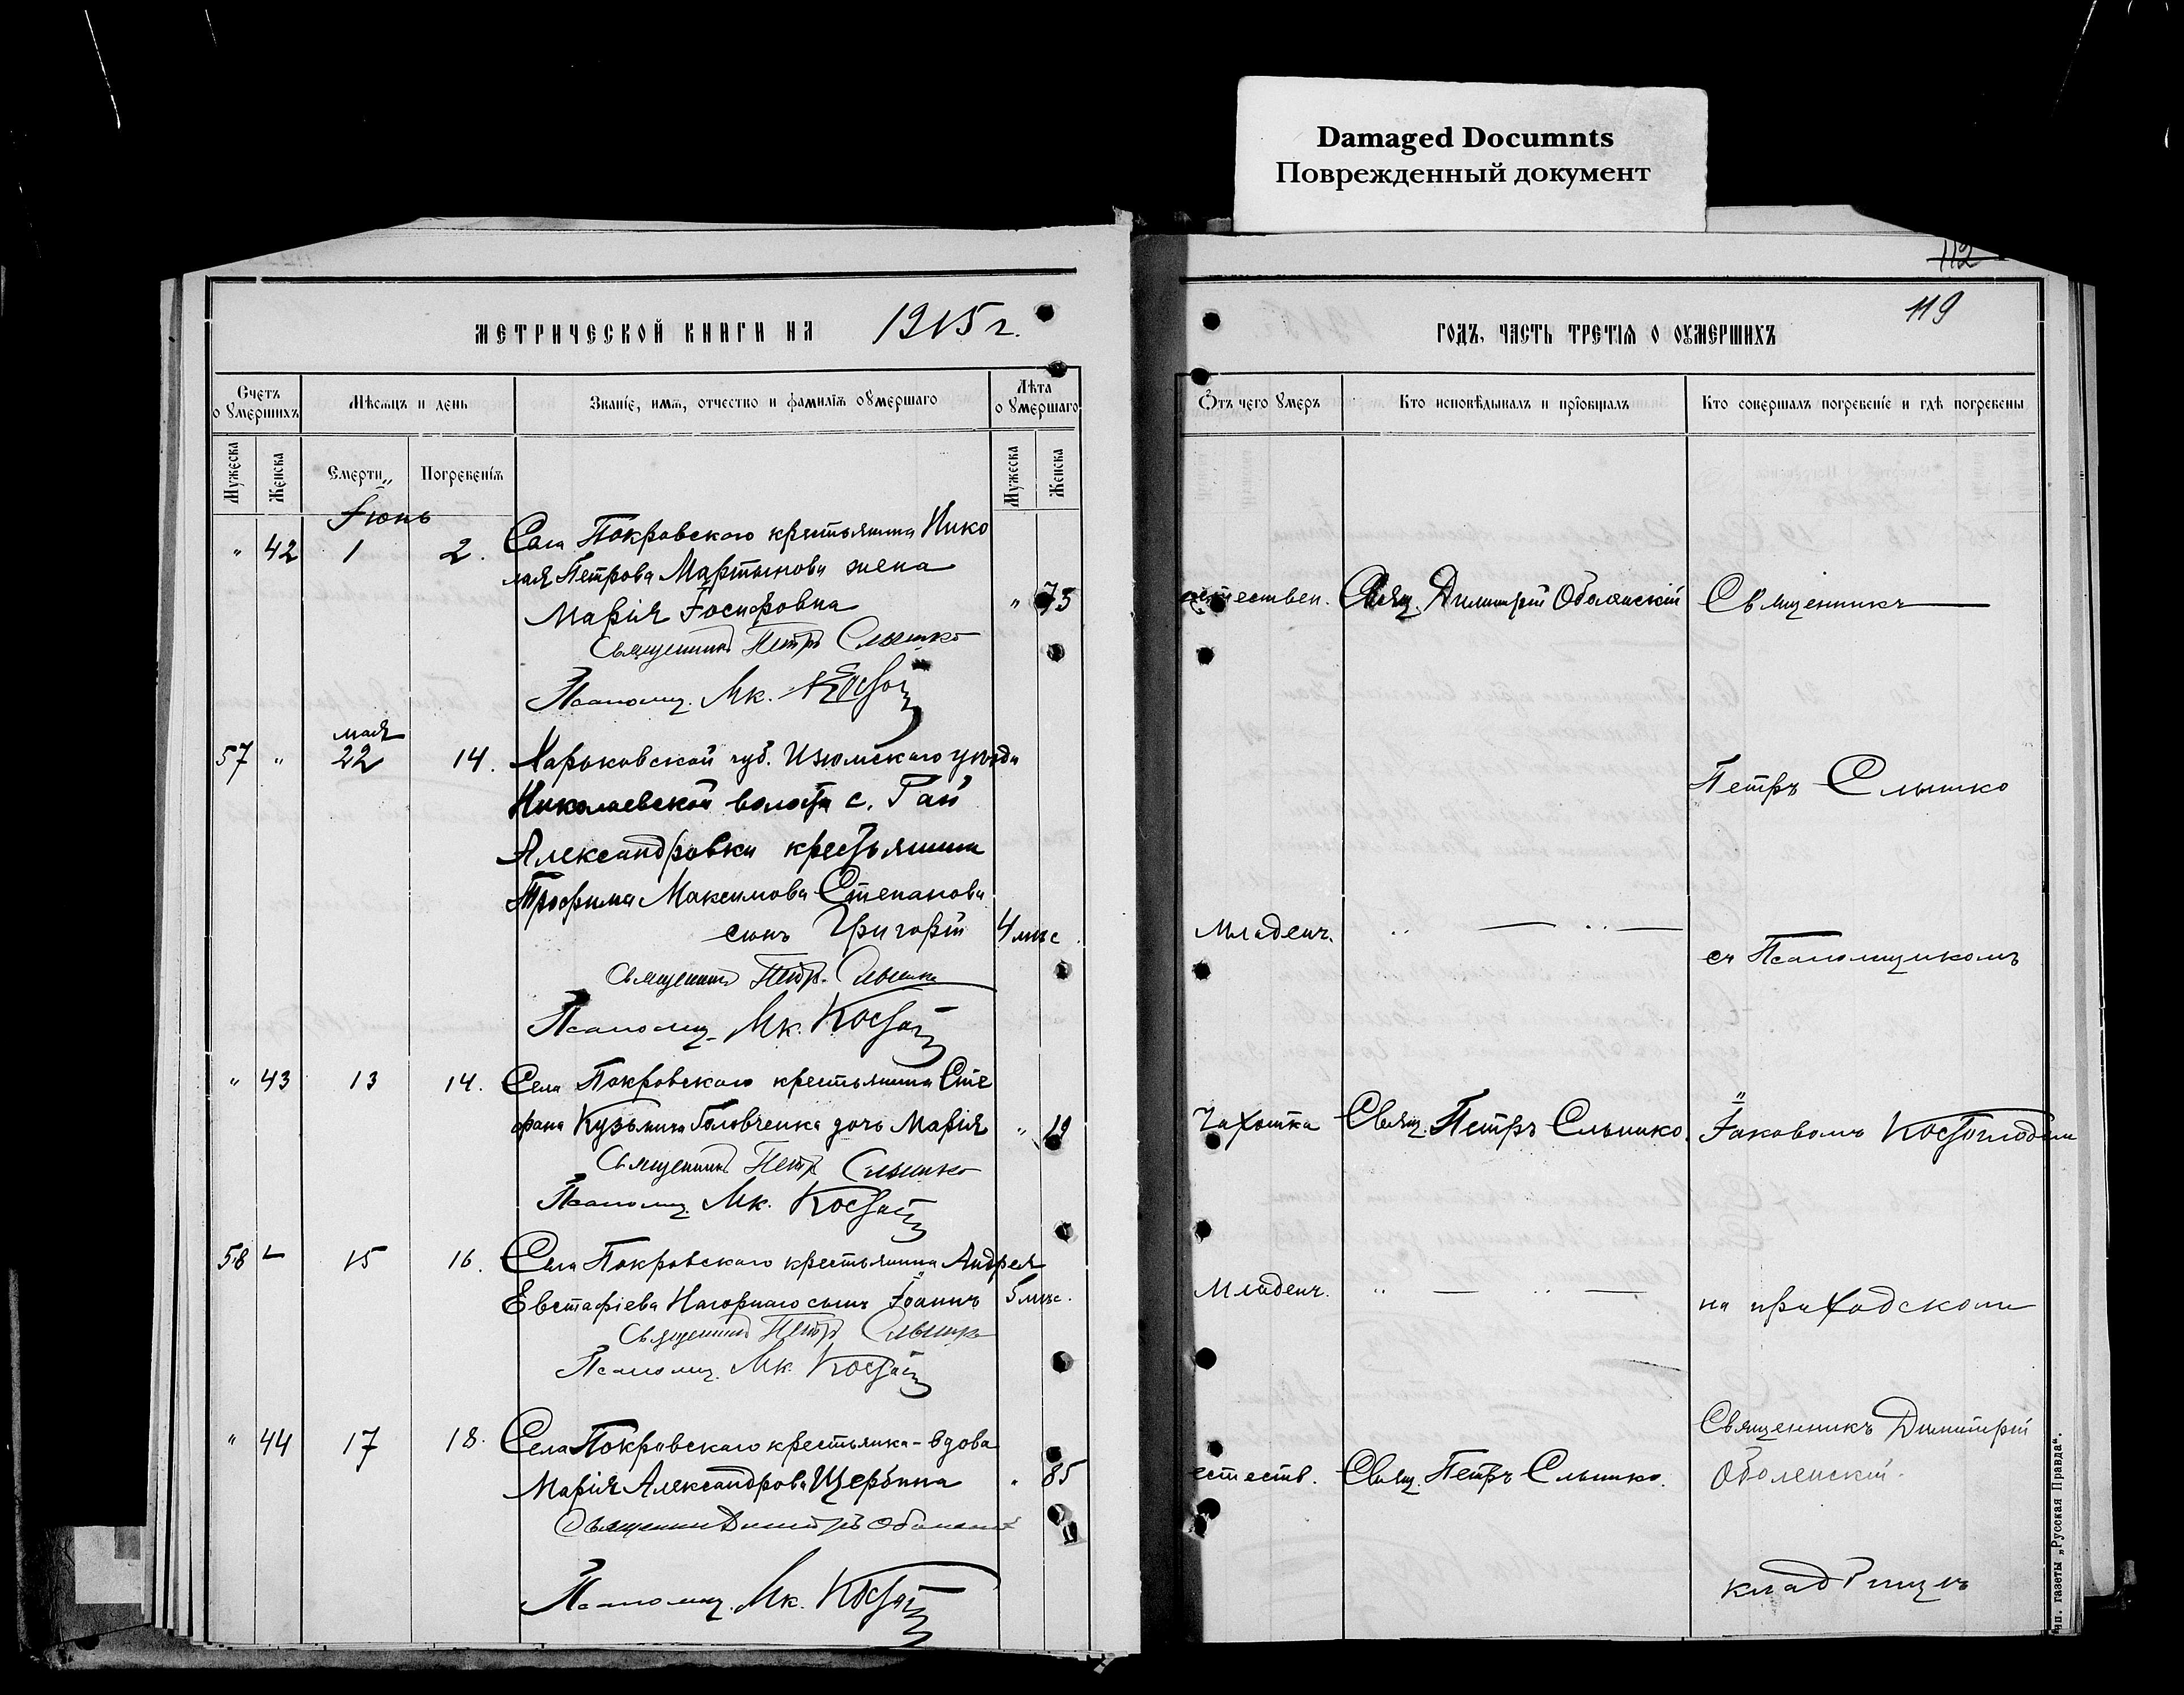 Damaged Documnts
Поврежденный документ
112
119
МЕТРИЧЕСКОЙ КНИГИ НА 1915 г.
ГОДЪ, ЧАСТЬ ТРЕТІЯ О ОУМЕРШИХЪ
Счетъ о умершихъ
Мѣсяцъ и день
Званіе, имя, отчество и фамилія оумершаго
Лѣта оумершаго
Мужеска
Женска
Смерти
Погребенія
Мужеска
Женска
Отъ чего умеръ
Кто исповѣдывалъ и пріобщалъ
Кто совершалъ погребеніе и гдѣ погребены
Іюнь
" 42 1 2. Села Покровского крестьянина Нико
лая Петрова Мартынова жена
Марія Іосифовна " 73
естествен. Свящ. Димитрій Оболенскій Священникъ
Священникъ Петръ Слынко
Псаломщ. Як.
мая
57 " 22 14. Харьковской губ. Изюмскаго уѣзда
Николаевской волости с. Рай
Петръ Слынко
Александровки крестьянина
Трофима Максимова Степанова
сынъ Григорій 4 мѣс
Младенч. " — " —
съ Псаломщикомъ
Священникъ Петръ Слынко
Псаломщ. Як.
" 43 13 14. Села Покровского крестьянина Сте
фана Кузьмича Головченка дочь Марія " 19
чахотка Свящ. Петръ Слынко. Іаковомъ
Священникъ Петръ Слынко
Псаломщ. Як.
58 " 15 16. Села Покровского крестьянина Андрея
Евстафіева Нагорнаго сынъ Іоаннъ 5 мѣс.
Младенч. " — " — на приходскомъ
Священникъ Петръ Слынко
Псаломщ. Як.
" 44 17 18. Села Покровскаго крестьянка-вдова
Марія Александрова Щербина " 85
естеств. Свящ. Петръ Слынко.
Священникъ Димитрій
Оболенскій.
Священникъ Димитрій Оболенскій
Псаломщ. Як.
кладбищѣ
тип. газеты „Русская Правда“.